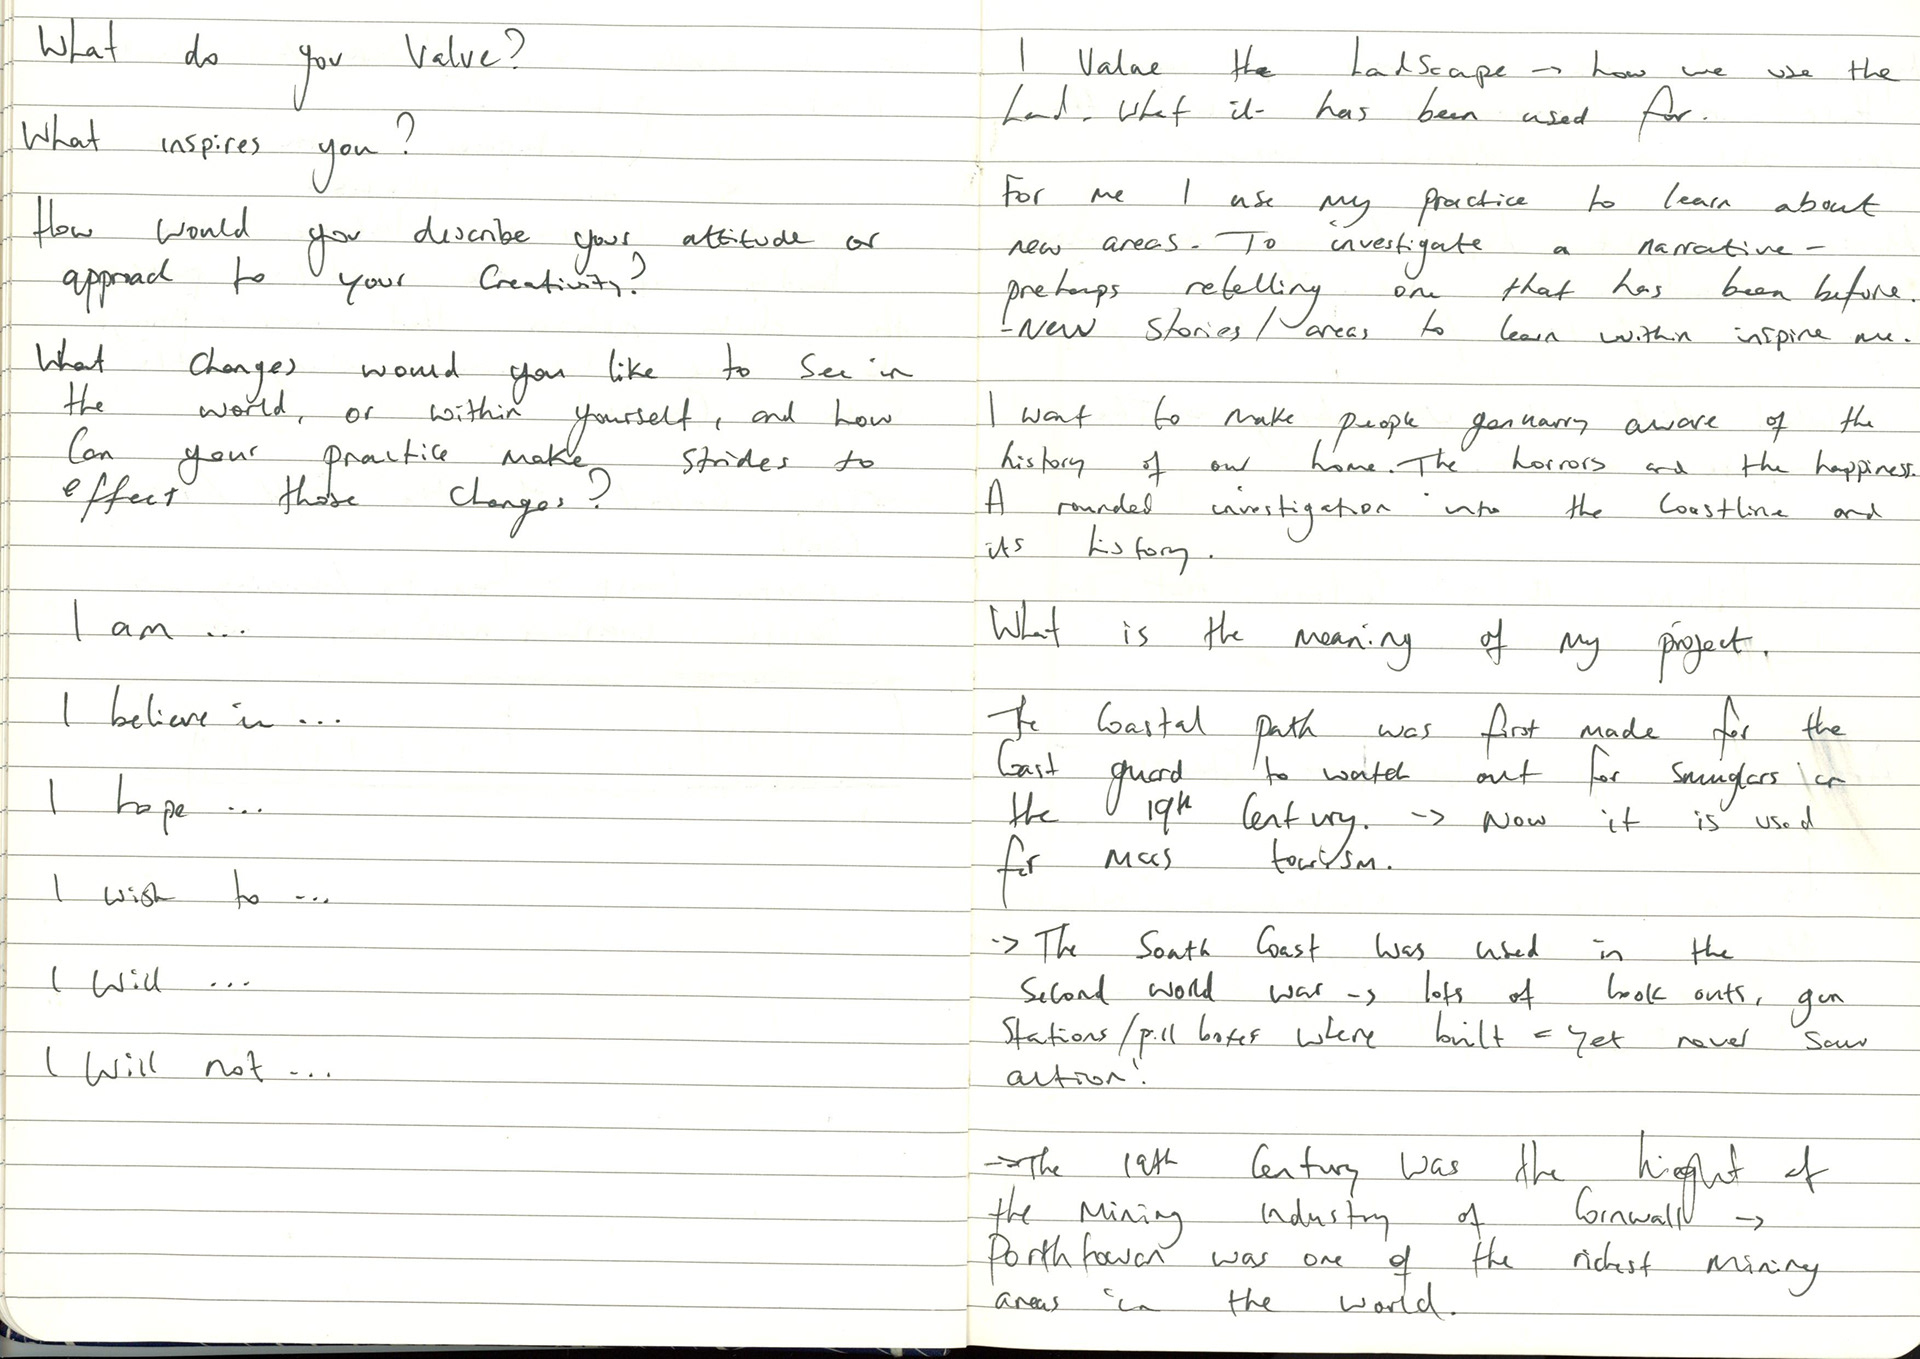 What do you value?
What inspires you?
How would you describe your attitude or
approach to your Creativity?
What changes would you like to see in
the world, or within yourself, and how
Can your practice make strides to
effect those changes?
I am ...
I believe in ...
I hope ...
I wish to ...
I will ...
I will not ...
I value the Landscape -> how we use the
land. What it has been used for.
For me I use my practice to learn about
new areas. To investigate a narrative -
prehaps retelling one that has been before.
- New stories/areas to learn within inspire me.
I want to make people aware of the
history of our home. The horrors and the happiness.
A rounded investigation into the Coastline and
its history.
What is the meaning of my project.
The Coastal path was first made for the
Coast guard to watch out for in
the 19th Century. -> Now it is used
for mass tourism.
-> The South Coast was used in the
Second world war -> lots of look outs, gun
Stations/pill boxes where built = Yet never saw
action!
-> The 19th Century was the hieght of
the Mining industry of Cornwall ->
Porthtowan was one of the richest mining
areas in the world.